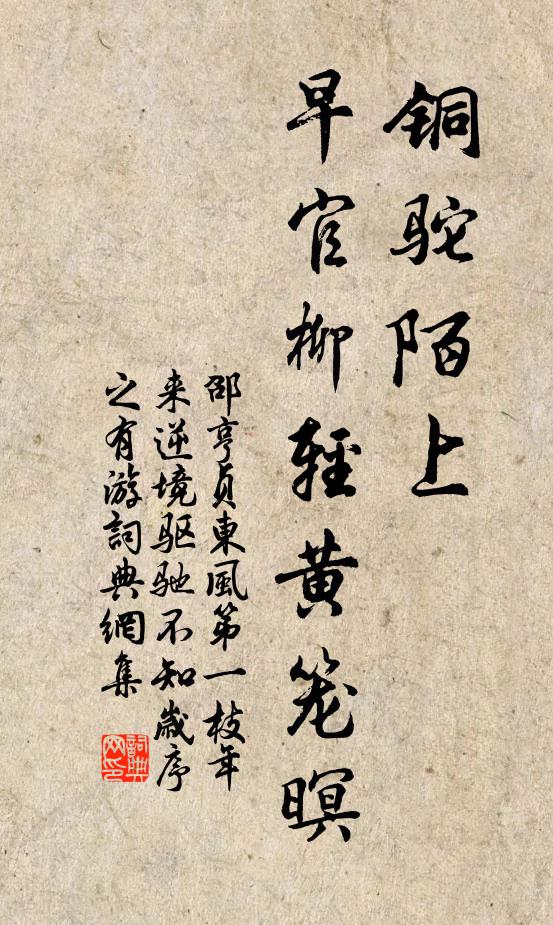 铜驼陌上
早官柳轻黄笼暝
邵亨贞東風第一枝年
来逆境驱驰不知歲序
之有游詞典網集
詞典
网印